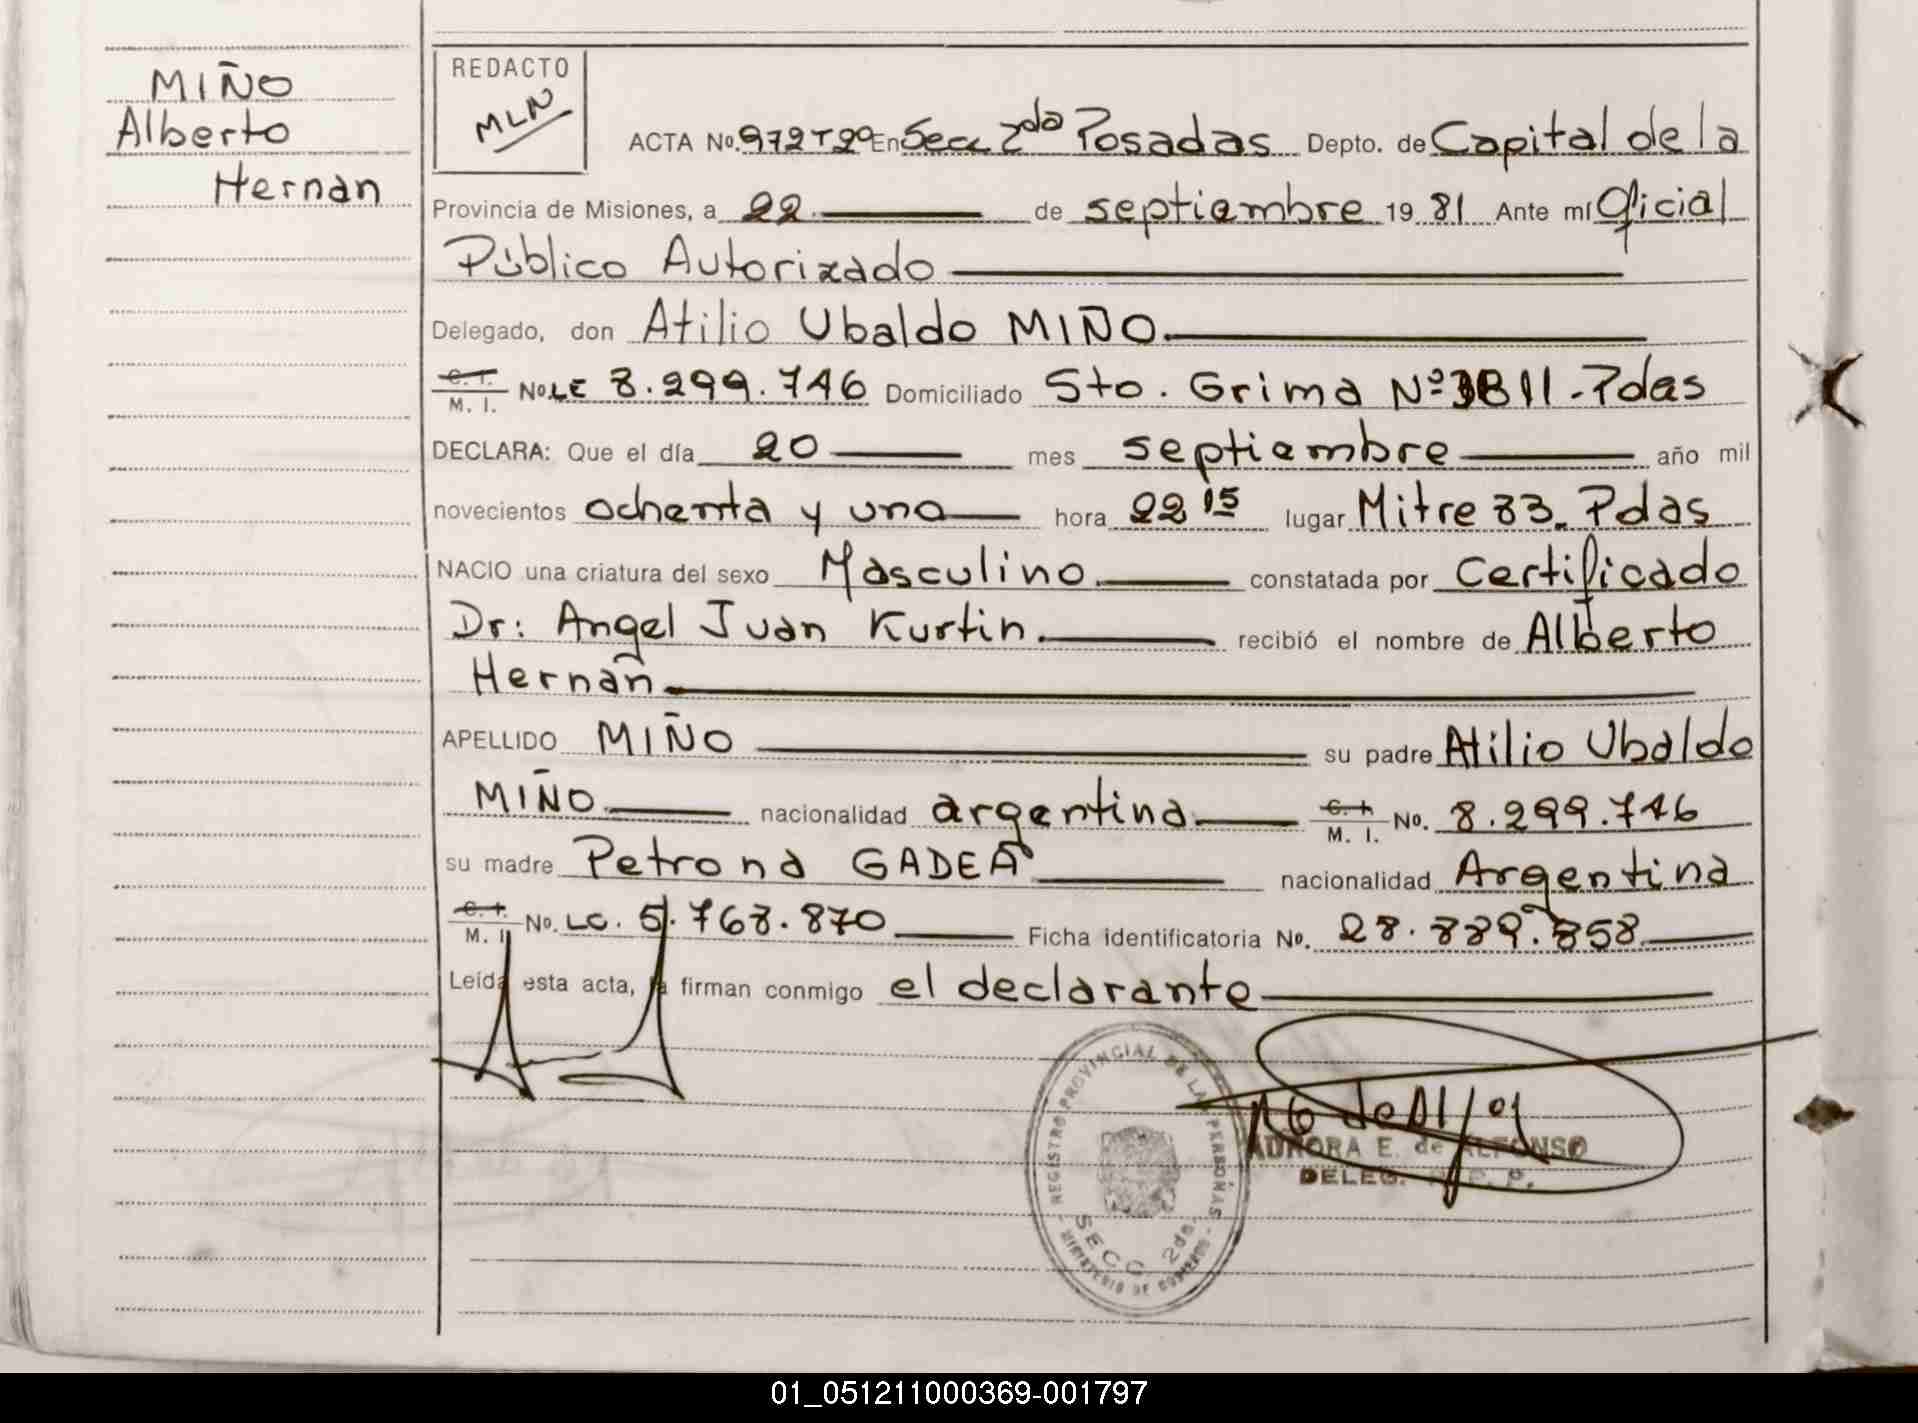 MIÑO
Alberto
Hernan
REDACTO
MLN
ACTA No. 972 T 2º En Secc 2da Posadas Depto. de Capital de la
Provincia de Misiones, a 22 de septiembre 19 81 Ante mí Oficial
Público Autorizado
Delegado, don Atilio Ubaldo MIÑO.
C. I. M. I. No LE 8.299.746 Domiciliado Sto. Grima Nº 3811 - Pdas
DECLARA: Que el día 20 mes septiembre año mil
novecientos ochenta y uno hora 22 15 lugar Mitre 83. Pdas
NACIO una criatura del sexo Masculino. constatada por Certificado
Dr: Angel Juan Kurtin. recibió el nombre de Alberto
Hernán.
APELLIDO MIÑO su padre Atilio Ubaldo
MIÑO. nacionalidad argentina. C. I. M. I. No. 8.299.746
su madre Petrona GADEA nacionalidad Argentina
C. I. M. I. No. LC. 5.768.870 Ficha identificatoria No. 28.889.858
Leída esta acta, la firman conmigo el declarante
REGISTRO PROVINCIAL DE LAS PERSONAS
SECC. 2da.
MINISTERIO DE GOBIERNO
AURORA E. de ALFONSO
DELEG. R. P. P.
01_051211000369-001797